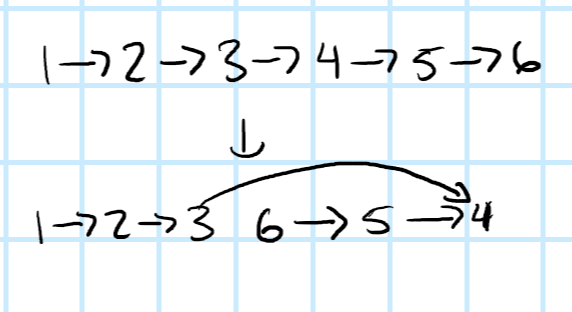 1→2→3→4→5→6
↓
1→2→3 6→5→4